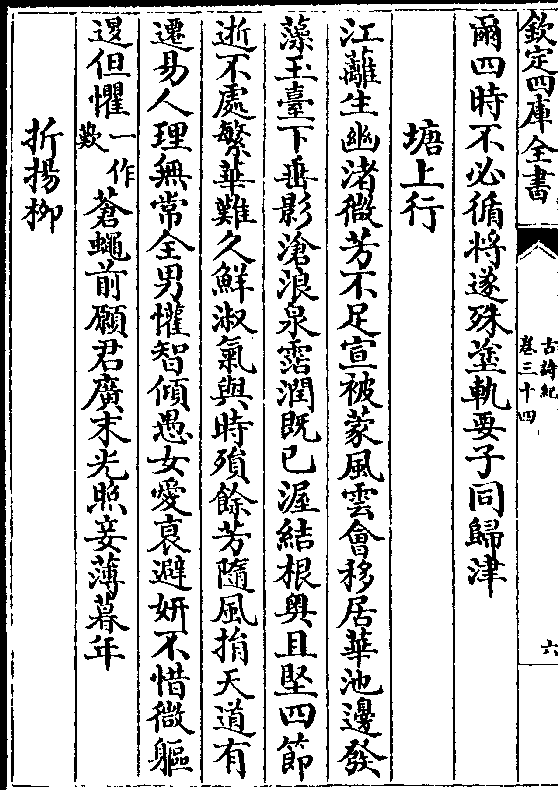 欽定四庫全書
古詩紀
卷三十四
六
爾四時不必循將遂殊塗軌要子同歸津
塘上行
江蘺生幽渚微芳不足宣被蒙風雲會移居華池邊發
藻玉臺下垂影滄浪泉霑潤既已渥結根奧且堅四節
逝不處繁華難久鮮淑氣與時殞餘芳隨風捐天道有
遷易人理無常全男懽智傾愚女愛衰避妍不惜微軀
退但懼一作歎蒼蠅前願君廣末光照妾薄暮年
折揚栁